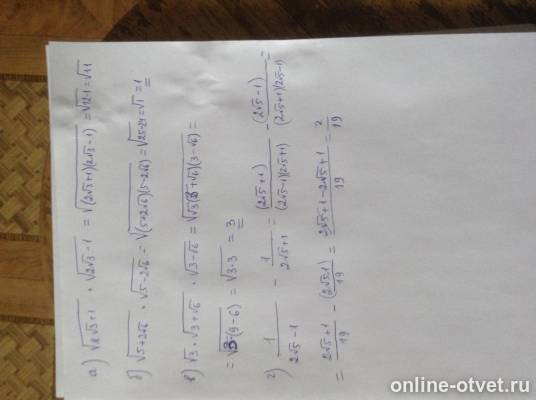 а) √(2√3+1) · √(2√3-1) = √((2√3+1)(2√3-1)) = √(12-1) = √11
б) √(5+2√6) · √(5-2√6) = √((5+2√6)(5-2√6)) = √(25-24) = √1 = 1
в) √3 · √(3+√6) · √(3-√6) = √(√3(3+√6)(3-√6)) =
= √(3·(9-6)) = √(3·3) = 3
г) 1/(2√5-1) - 1/(2√5+1) = (2√5+1)/((2√5-1)(2√5+1)) - (2√5-1)/((2√5+1)(2√5-1)) =
= (2√5+1)/19 - (2√5-1)/19 = (2√5+1-2√5+1)/19 = 2/19
online-otvet.ru